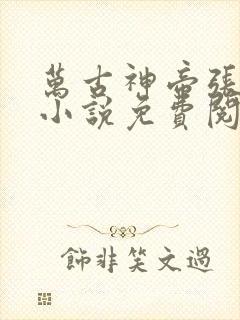 萬古神帝張
小說免費閱
飾非笑文過